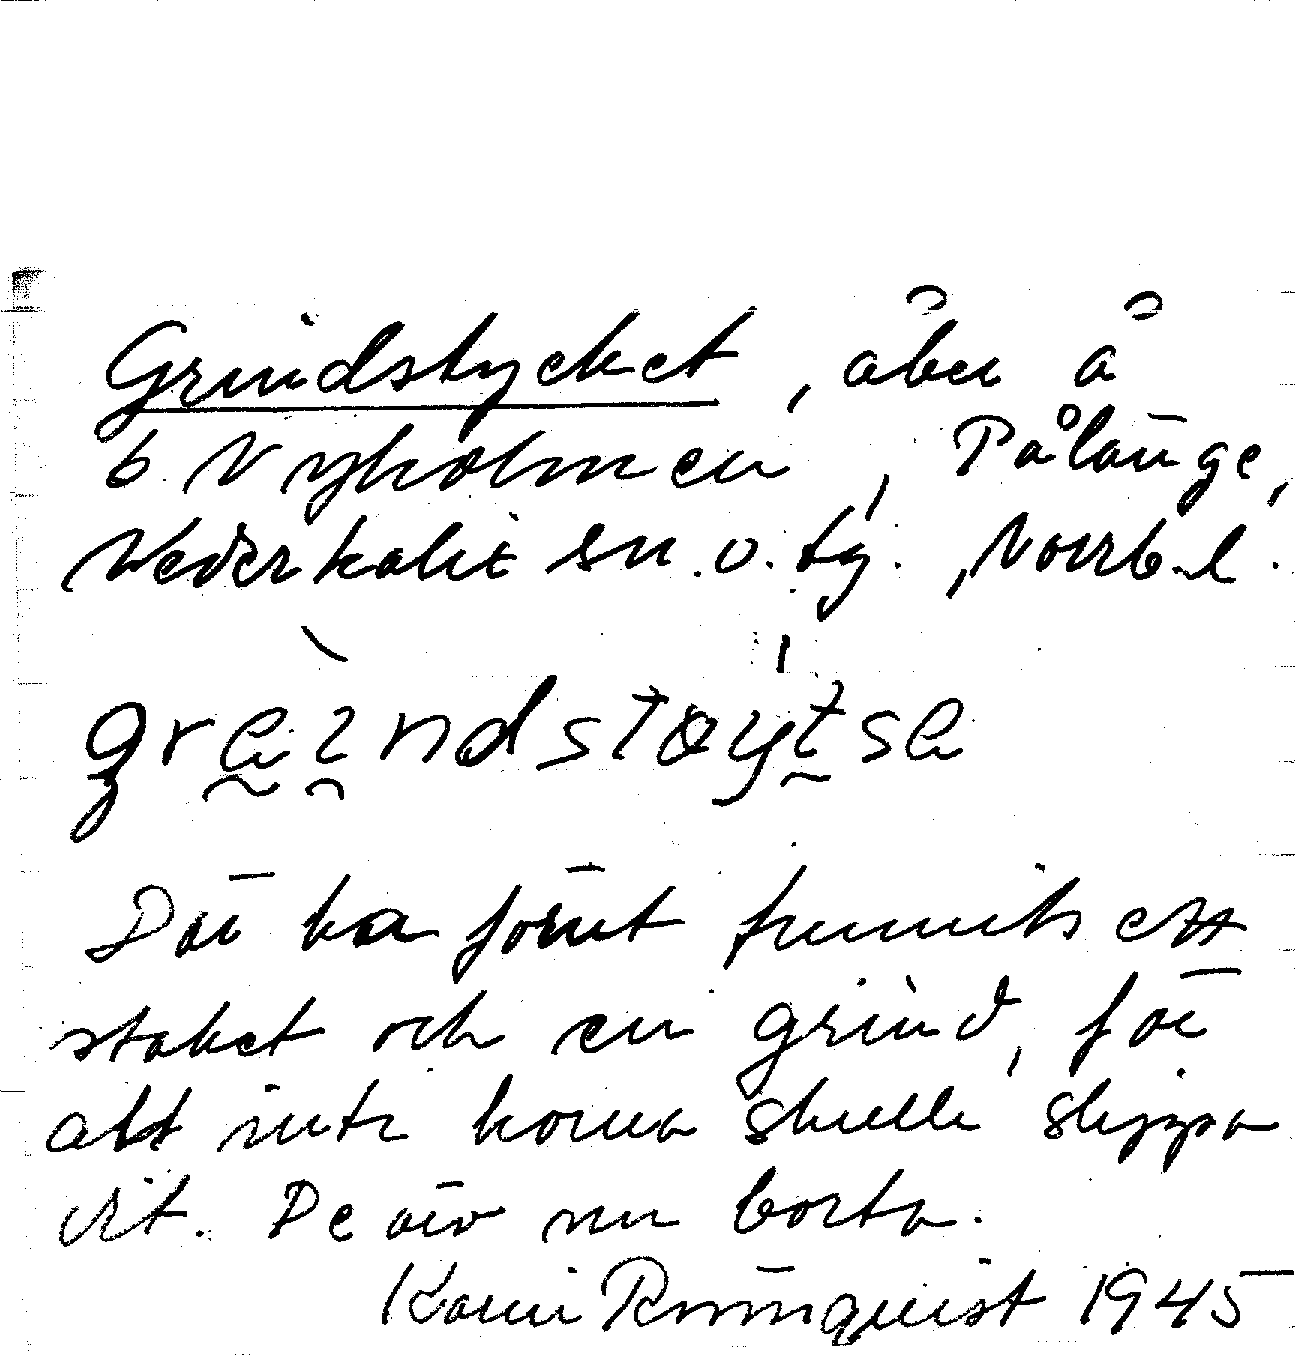 Grindstycket, åker å
b. Nyholmen, Pålänge,
Nederkalix sn.o.tg., Norrb.l.
Där ha förut funnits ett
staket och en grind, för
att inte korna skulle slippa
dit. De är nu borta.
Karin Rönnquist 1945